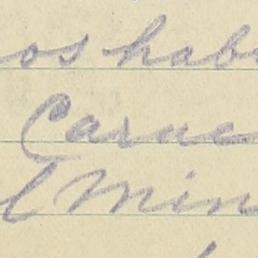 os hab
Carne
l Min